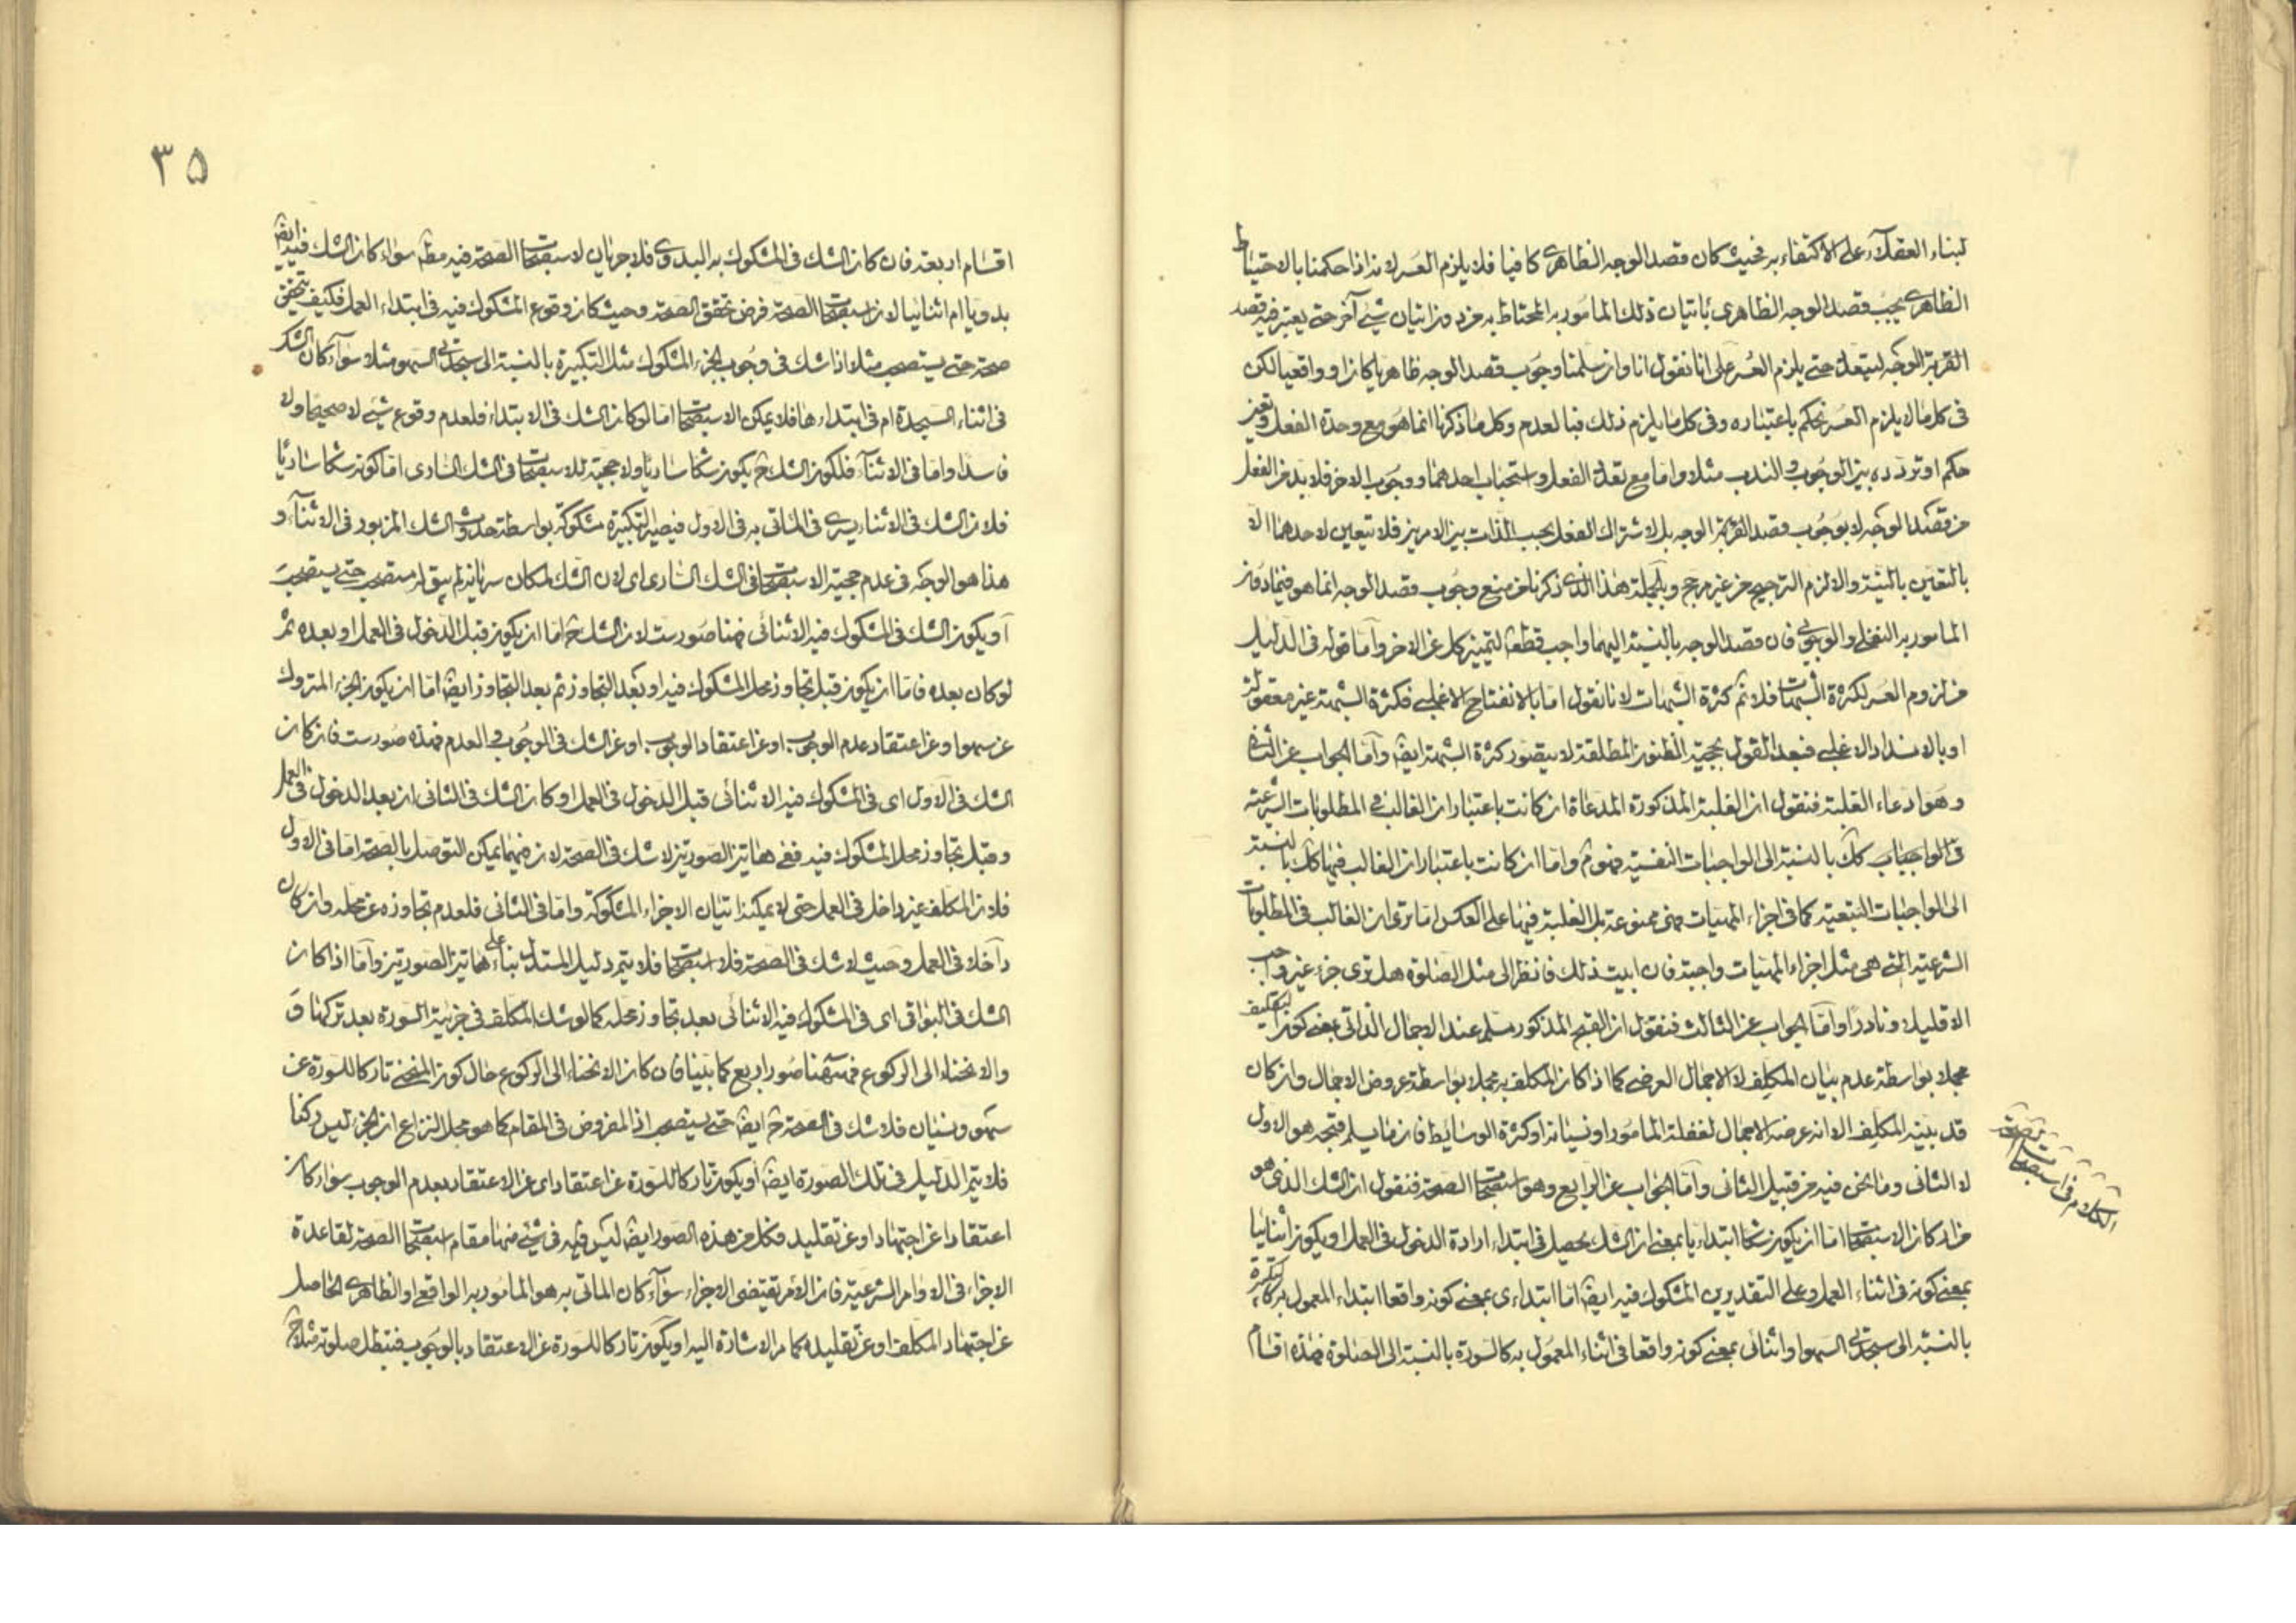 لبناء العقلاء على الاكتفاء به فحيث كان قصد الوجه الظاهرى كافيا فلا يلزم العسر لانه اذا حكمنا بالاحتياط
الظاهرى يجب قصد الوجه الظاهرى باتيان ذلك المامور به المحتاط به من دون اتيان شئ آخر حتى يعتبر فيه قصد
القربة الوجه ليتعدد حتى يلزم العسر على انا نقول انا وان سلمنا وجوب قصد الوجه ظاهريا كان او واقعيا لكن
فى كل ما لا يلزم العسر نحكم باعتباره وفى كل ما يلزم ذلك فبالعدم وكل ما ذكرنا انما هو مع وحدة الفعل وتعين
حكمه او تردده بين الوجوب والندب مثلا واما مع تعدد الفعل واستحباب احدهما ووجوب الاخر فلا بد من الفعل
من قصد الوجه لا بوجوب قصد القربة الوجه بل لاشتراك الفعل بحسب الذات بين الامرين فلا تتعين لاحدهما الا
بالتعين بالنية والا لزم الترجيح من غير مرجح وبالجملة هذا الذى ذكرنا من منع وجوب قصد الوجه انما هو فيما دون
المامور به النفلى والوجوبى فان قصد الوجه بالنسبة اليهما واجب قطعا لتميز كل عن الاخر واما قوله فى الدليل
من لزوم العسر لكثرة الشبهات فلا ثم كثرة الشبهات لانا نقول اما بالانفتاح الاغلبى فكثرة الشبهة غير معقولة
او بالانسداد الاغلبى فبعد القول بحجية الظنون المطلقة لا يتصور كثرة الشبهة ايضا واما الجواب عن الثانى
وهو ادعاء الغلبة فنقول ان الغلبة المذكورة المدعاة ان كانت باعتبار ان الغالب فى المطلوبات الشرعية
فى الواجبات كك بالنسبة الى الواجبات النفسية فهو ثم واما ان كانت باعتبار ان الغالب فيها كك بالنسبة
الى الواجبات التبعية كما فى اجزاء المهيات فهى ممنوعة بل الغلبة فيها على العكس اما ترى ان الغالب فى المطلوبات
الشرعية التى هى مثل اجزاء المهيات واجبة فان ابيت ذلك فانظر الى مثل الصلوة هل ترى جزء غير واجب
الا قليلا ونادرا واما الجواب عن الثالث فنقول ان القبح المذكور مسلم عند الاجمال الذاتى بمعنى كون التكليف
مجملا بواسطة عدم بيان المكلف لا الاجمال العرضى كما اذا كان المكلف به مجملا بواسطة عروض الاجمال وان كان
قد بينه المكلف الا انه عرضه الاجمال لغفلة المامور او نسيانه او كثرة الوسايط فان ما يسلم قبحه هو الاول
لا الثانى وما نحن فيه من قبيل الثانى واما الجواب عن الرابع وهو استصحاب الصحة فنقول ان الشك الذى هو
من اركان الاستصحاب اما ان يكون شكا ابتدائيا بمعنى ان الشك يحصل فى ابتداء ارادة الدخول فى العمل او يكون اثنائيا
بمعنى كونه فى اثناء العمل وعلى التقديرين المشكوك فيه ايضا اما ابتدائى بمعنى كونه واقعا ابتداء المعمول به كالتكبيرة
بالنسبة الى سجدتى السهو او اثنائى بمعنى كونه واقعا فى اثناء المعمول به كالسورة بالنسبة الى الصلوة فهذه اقسام
الكلام فى استصحاب الصحة
٣٥
اقسام اربعة فان كان الشك فى المشكوك به البدوى فلا جريان لاستصحاب الصحة فيه مطلقا سواء كان الشك فيه ايضا
بدويا ام اثنائيا لان استصحاب الصحة فرض تحقق الصحة وحيث كان وقوع المشكوك فيه فى ابتداء العمل فكيف تتحقق
صحة حتى يستصحب مثلا اذا شك فى وجوب الجزء المشكوك مثل التكبيرة بالنسبة الى سجدتى السهو مثلا سواء كان الشك
فى اثناء السجدة ام فى ابتداءها فلا يمكن الاستصحاب اما لو كان الشك فى الابتداء فلعدم وقوع شئ لا صحيحا ولا
فاسدا واما فى الاثناء فلكون الشك ح يكون شكا ساريا ولا حجية للاستصحاب فى الشك السارى اما كونه شكا ساريا
فلان الشك فى الاثناء يسرى فى الماتى به فى الاول فيصير التكبيرة مشكوكة بواسطة حدوث الشك المزبور فى الاثناء و
هذا هو الوجه فى عدم حجية الاستصحاب فى الشك السارى اى لان الشك لمكان سريانه لم يبق له مستصحب حتى يستصحب
او يكون الشك فى المشكوك فيه الاثنائى فهنا صور ست لان الشك ح اما ان يكون قبل الدخول فى العمل او بعده ثم
لو كان بعده فاما ان يكون قبل تجاوز محل المشكوك فيه او بعد التجاوز ثم بعد التجاوز ايضا اما ان يكون الجزء المتروك
عن سهو او عن اعتقاد عدم الوجوب او عن اعتقاد الوجوب او عن الشك فى الوجوب والعدم فهذه صور ست فان كان
الشك فى الاول اى فى المشكوك فيه الاثنائى قبل الدخول فى العمل او كان الشك فى الثانى اى بعد الدخول فى العمل
وقبل تجاوز محل المشكوك فيه ففى هاتين الصورتين لا شك فى الصحة لان فيهما يمكن التوصل بالصحة اما فى الاول
فلان المكلف غير داخل فى العمل حتى لا يمكنه اتيان الاجزاء المشكوكة واما فى الثانى فلعدم تجاوزه عن محله وان كان
داخلا فى العمل وحيث لا شك فى الصحة فلا استصحاب فلا يتم دليل المستدل بناء على هاتين الصورتين واما اذا كان
الشك فى البواقى اى فى المشكوك فيه الاثنائى بعد تجاوز محله كما لو شك المكلف فى جزئية السورة بعد تركها و
والانحناء الى الركوع فههنا صور اربع كما بينا فان كان الانحناء الى الركوع حال كون المنحنى تاركا للسورة عن
سهو ونسيان فلا شك فى الصحة ح ايضا حتى يستصحب اذ المفروض فى المقام كما هو محل النزاع ان الجزء ليس ركنا
فلا يتم الدليل فى تلك الصورة ايضا او يكون تاركا للسورة عن اعتقاد اى عن الاعتقاد بعدم الوجوب سواء كان
اعتقادا عن اجتهاد او عن تقليد فكل من هذه الصور ايضا ليس فيه فى شئ منها مقام استصحاب الصحة لقاعدة
الاجزاء فى الاوامر الشرعية فان الامر يقتضى الاجزاء سواء كان الماتى به هو المامور به الواقعى او الظاهرى الحاصل
عن اجتهاد المكلف او عن تقليده كما مر الاشارة اليه او يكون تاركا للسورة عن الاعتقاد بالوجوب فتبطل صلوته مثلا ح